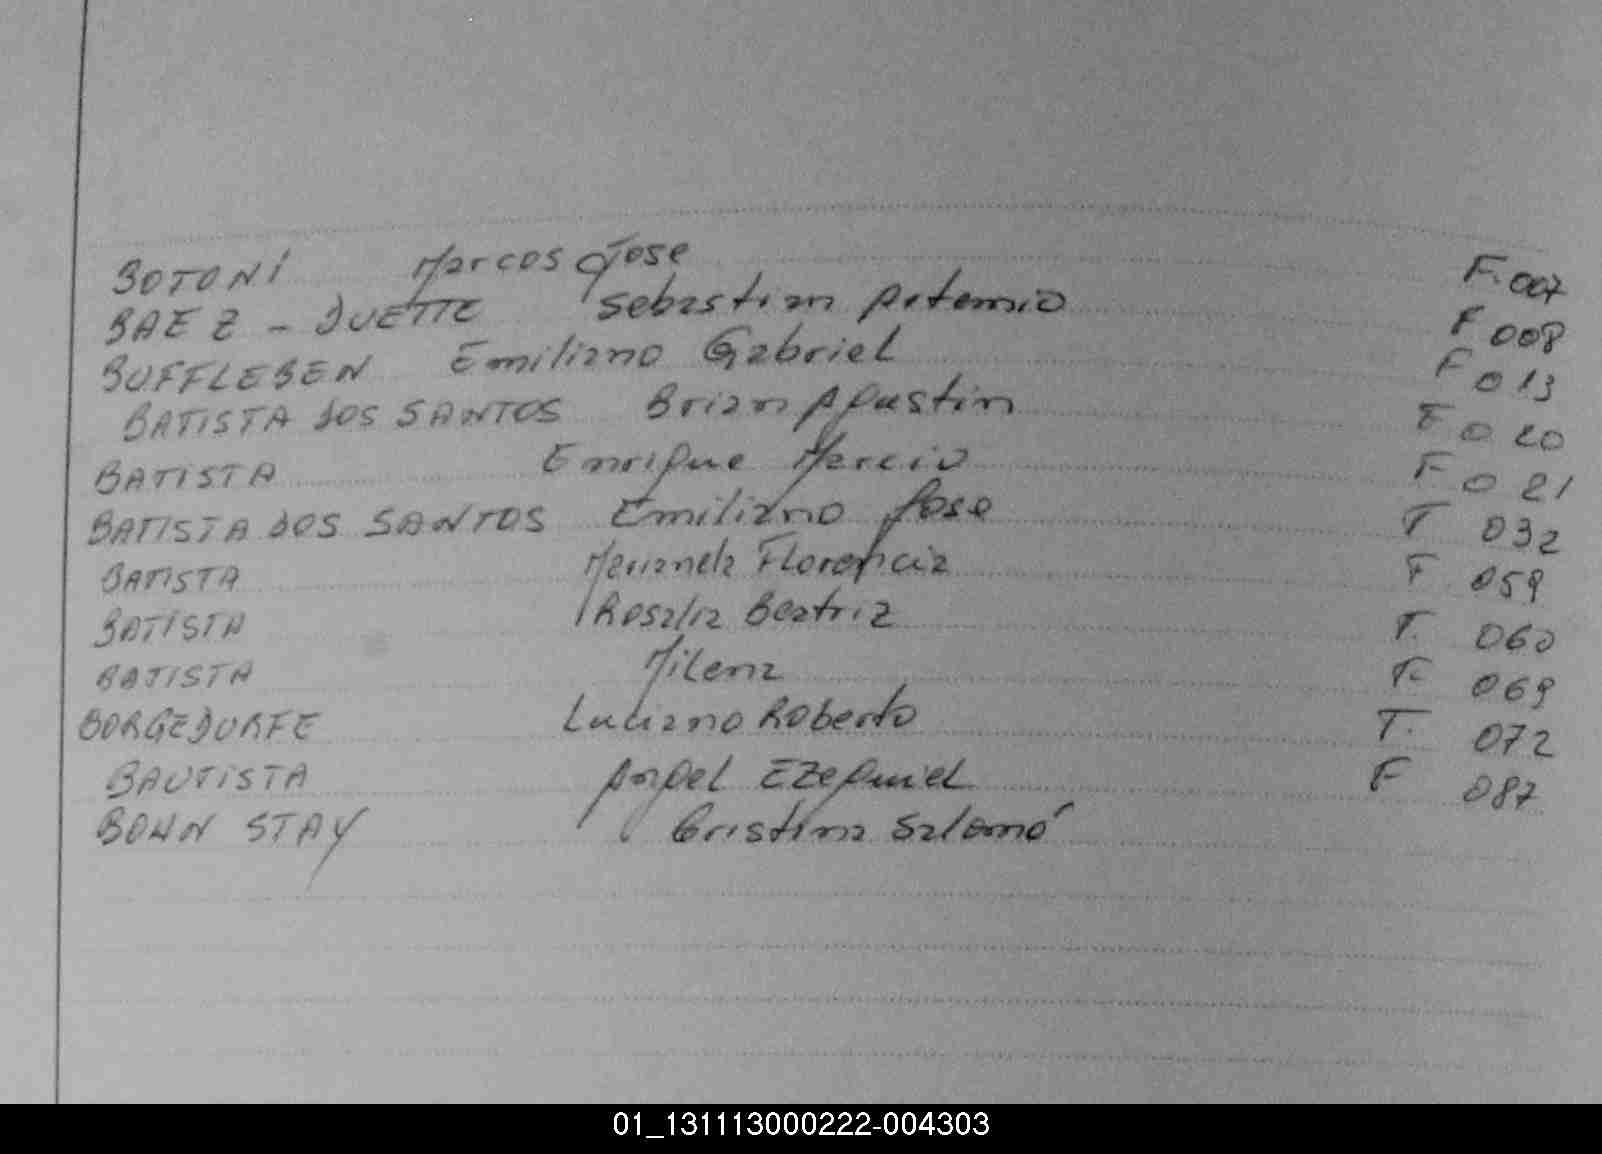 BOTONI Marcos Jose F. 007
BAEZ - DUETTE Sebastian Artemio F 008
BUFFLEBEN Emiliano Gabriel F 013
BATISTA DOS SANTOS Brian Agustin F 020
BATISTA Enrique Marcio F 021
BATISTA DOS SANTOS Emiliano Jose F 032
BATISTA Marianela Florencia F 059
BATISTA Rosalia Beatriz F. 060
BATISTA Milena F. 069
BORGEDURFE Luciano Roberto F. 072
BAUTISTA Angel Ezequiel F 087
BOHN STAY Cristina Salomé
01_131113000222-004303